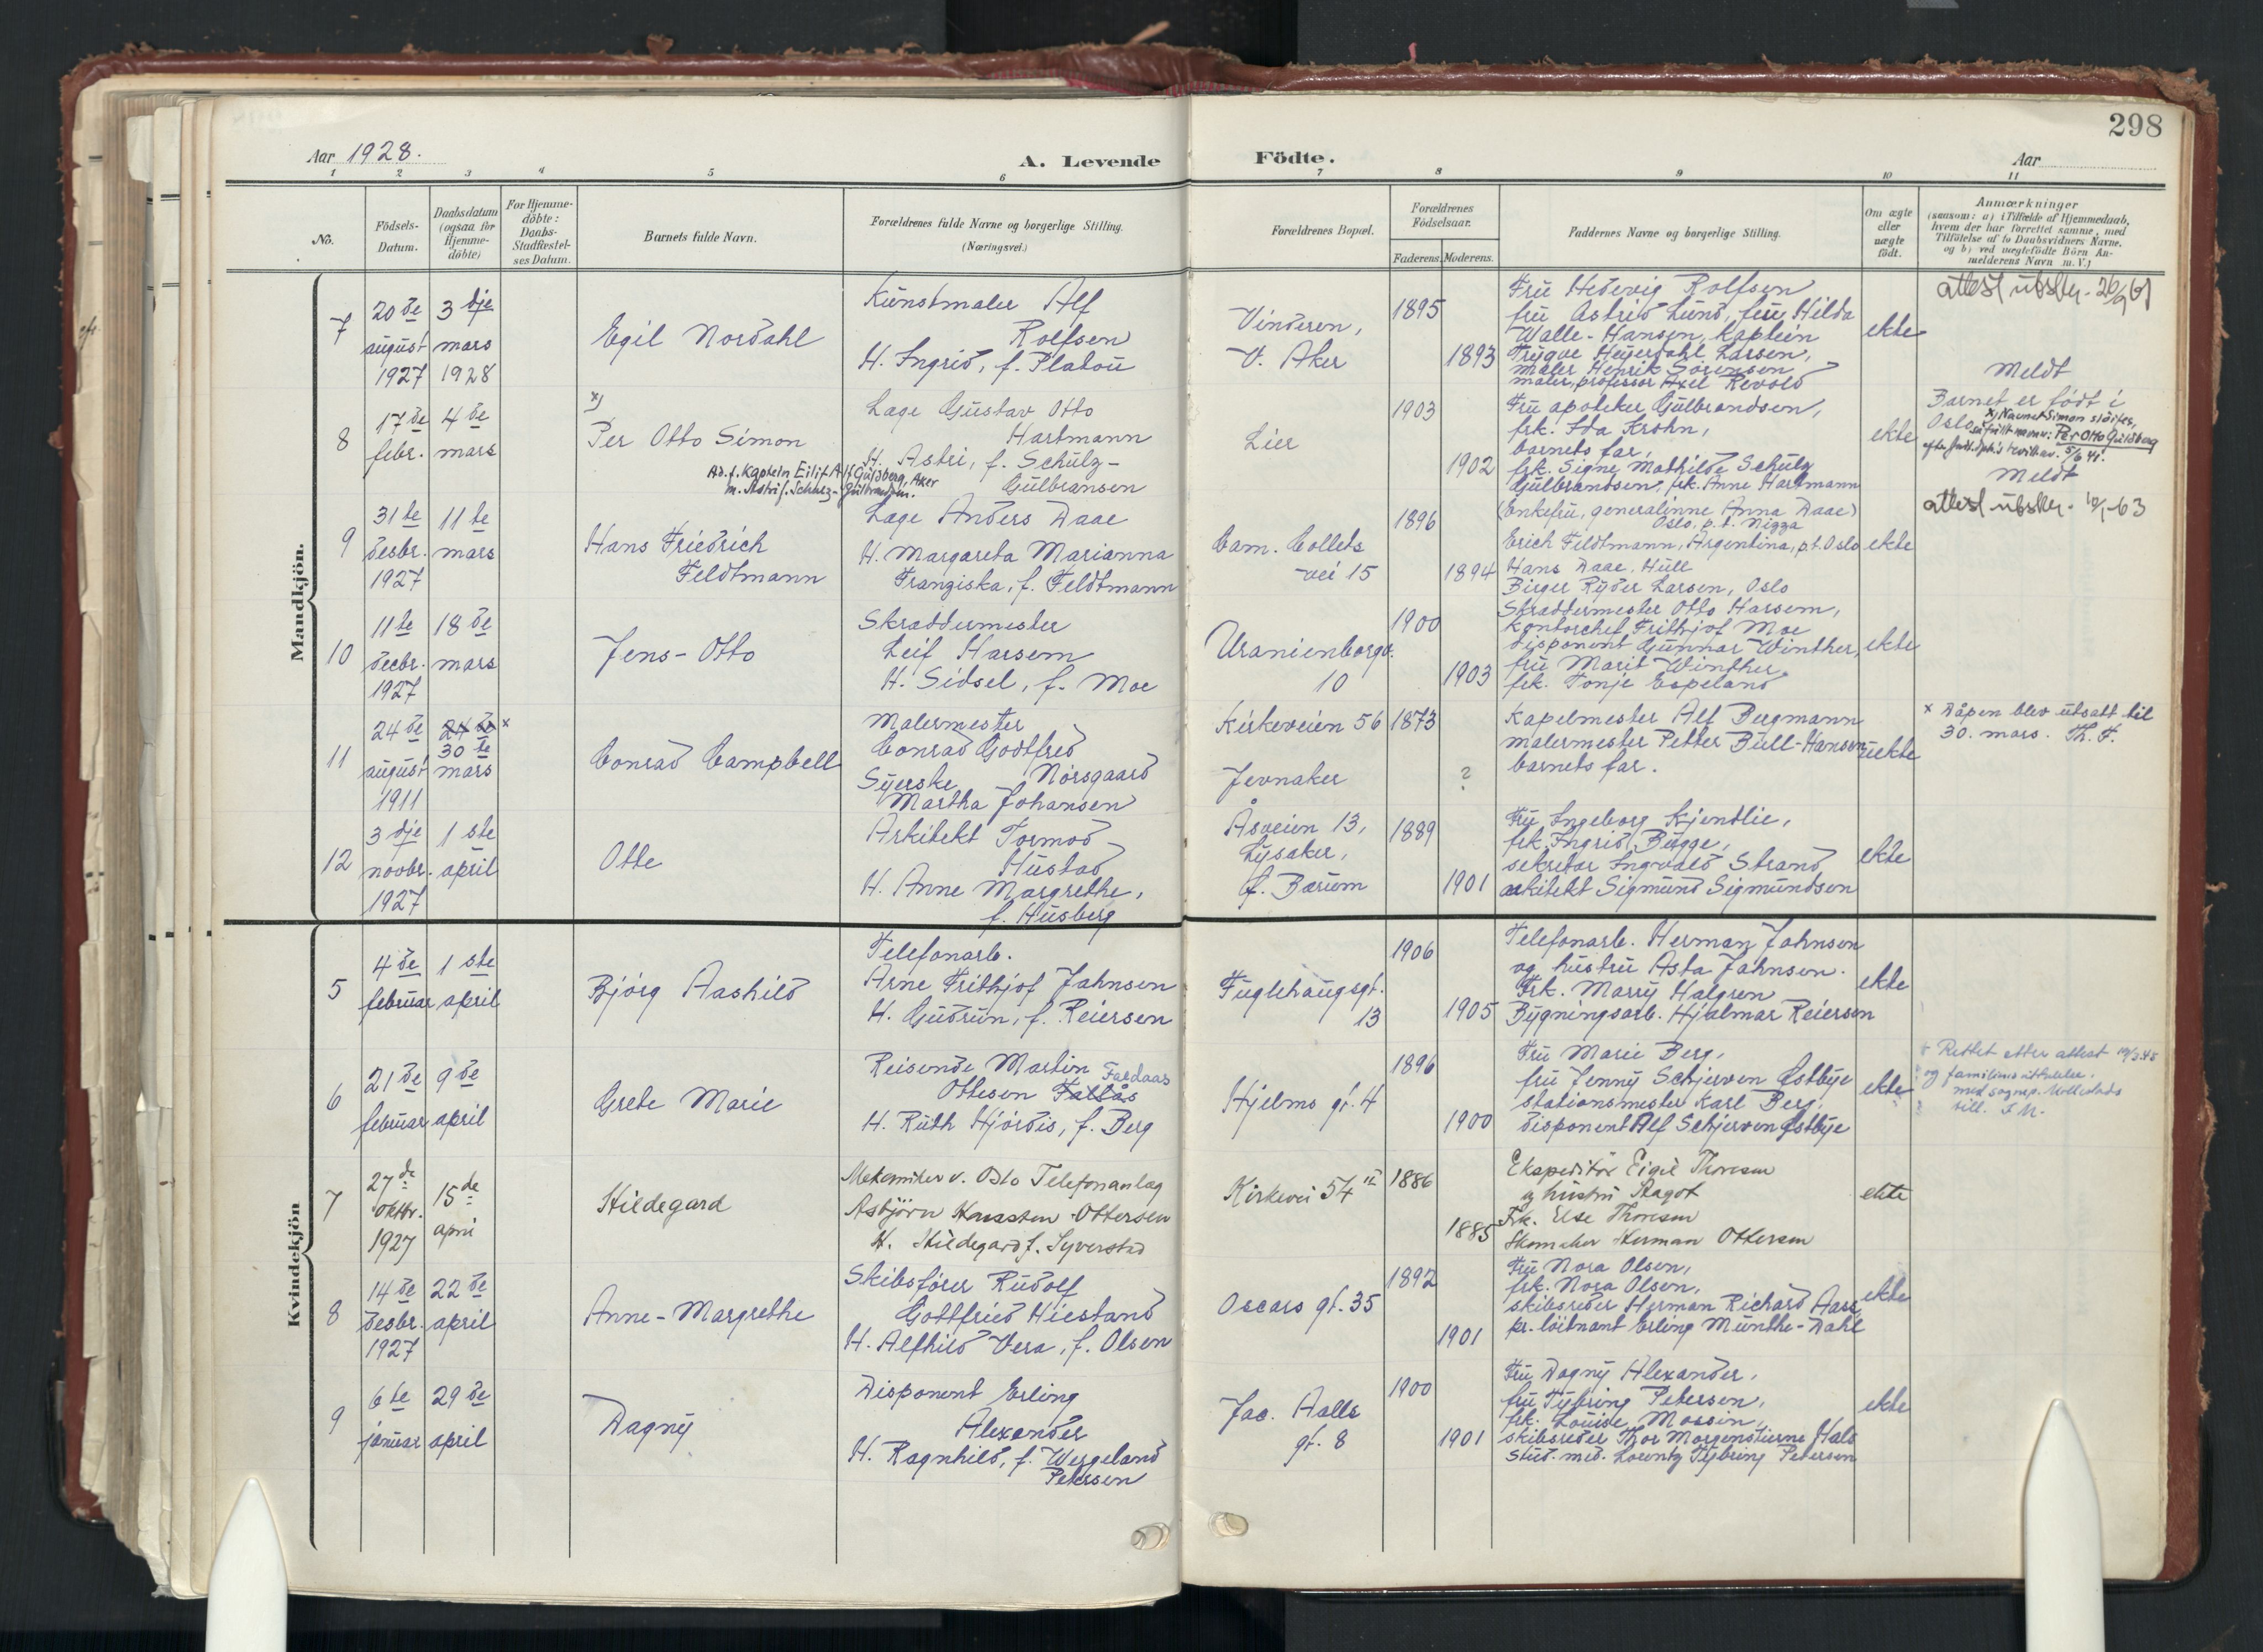 298
Aar 1928.
A. Levende Födte.
Aar
1 2 3 4 5 6 7 8 9 10 11
No.
Födsels-Datum.
Daabsdatum (ogsaa for Hjemme-döbte)
For Hjemme-döbte: Daabs-Stadfæstel-ses Datum.
Barnets fulde Navn.
Forældrenes fulde Navne og borgerlige Stilling. (Næringsvei.)
Forældrenes Bopæl.
Forældrenes Födselsaar.
Faderens. Moderens.
Faddernes Navne og borgerlige Stilling.
Om ægte eller uægte födt.
Anmærkninger
(saasom: a) i Tilfælde af Hjemmedaab, hvem der har forrettet samme, med Tilföielse af to Daabsvidners Navne, og b) ved uægtefödte Börn An-melderens Navn m. V.)
Mandkjön.
7
20de august 1927
3dje mars 1928
Egil Nordahl
Kunstmaler Alf
Rolfsen
H. Ingrid, f. Platou
Vinderen,
V. Aker
1895
1893
Fru Hedevig Rolfsen
fru Astrid Lund, fru Hilda
Walle-Hansen, Kaptein
Trygve Heyerdahl Larsen,
maler Henrik Sørensen
maler, professor Axel Revold
ekte
attest utskr. 26/9 61
Meldt
8
17de febr.
4de mars
x)
Per Otto Simon
Ad. f. Kaptein Eilif Alf Guldberg, Aker
m. Astri f. Schulz-Gulbrandsen.
Læge Gustav Otto
Hartmann
H. Astri, f. Schulz-
Gulbransen
Lier
1903
1902
Fru apoteker Gulbrandsen,
frk. Ida Krohn,
barnets far,
frk. Signe Mathilde Schulz
Gulbrandsen, frk. Anne Hartmann
ekte
Barnet er født i
Oslo
x) Navnet Simon sløifes,
navn: Per Otto Guldberg
5/6 41.
Meldt
9
31te desbr. 1927
11te mars
Hans Friedrich
Feldtmann
Læge Anders Daae
H. Margareta Marianna
Franziska, f. Feldtmann
Cam. Colletts
vei 15
1896
1894
(Enkefru, generalinne Anna Daae)
Oslo, p. t. Nizza
Erich Feldtmann, Argentina, p.t. Oslo
Hans Daae, Hull
Birger Ryder Larsen, Oslo
ekte
attest utskr. 10/1-63
10
11te decbr. 1927
18de mars
Jens-Otto
Skræddermester
Leif Harsem
H. Sidsel, f. Moe
Uranienborgv.
10
1900
1903
Skræddermester Otto Harsem,
kontorchef Frithjof Moe
disponent Gunnar Winther,
fru Marit Winther,
frk. Tonje Espeland
ekte
11
24de august 1911
24de x
30te mars
Conrad Campbell
Malermester
Conrad Godtfred
Nörsgaard
Syerske
Martha Johansen
Kirkeveien 56
Jevnaker
1873
?
Kapelmester Alf Bergmann
malermester Petter Bull-Hansen
barnets far.
uekte
x Dåpen blev utsatt til
30. mars. Th. F.
12
3dje novbr. 1927
1ste april
Otte
Arkitekt Tormod
Hustad
H. Anne Margrethe,
f. Husberg
Åsveien 13,
Lysaker,
f. Bærum
1889
1901
Fru Ingeborg Kjendlie,
frk. Ingrid Bugge,
sekretær Ingvald Strand
arkitekt Sigmund Sigmundsen
ekte
Kvindekjön
5
4de februar
1ste april
Bjørg Aashild
Telefonarb.
Arne Frithjof Jahnsen
H. Gudrun, f. Reiersen
Fuglehaugsgt.
13
1906
1905
Telefonarb. Herman Jahnsen
og hustru Asta Jahnsen.
Frk. Marry Halgren
Bygningsarb. Hjalmar Reiersen
ekte
6
21de februar
9de april
Grete Marie
Reisende Martin Faldaas
Ottesen Fallås
H. Ruth Hjördis, f. Berg
Hjelms gt. 4
1896
1900
Fru Marie Berg,
fru Jenny Schjerven Østbye
stationsmester Karl Berg,
disponent Alf Schjerven Østbye
ekte
x Rettet etter attest 19/3.45
og familiens uttalelse.
7
27de oktbr. 1927
15de april
Hildegard
Mekaniker v. Oslo Telefonanlæg
Asbjörn Ottersen
H. Hildegard f. Syverstad
Kirkevei 54 II
1886
1885
Ekspeditör Eigil Thoresen
og hustru Ragot
Frk. Else Thoresen
Skomaker Herman Ottersen
ekte
8
14de desbr. 1927
22de april
Anne-Margrethe
Skibsfører Rudolf
Gottfried Hiestand
H. Alfhild Vera, f. Olsen
Oscars gt. 35
1892
1901
Fru Nora Olsen,
frk. Nora Olsen,
skibsreder Herman Richard Aass,
pr. löitnant Erling Munthe-Dahl
ekte
9
6te januar
29de april
Dagny
Disponent Erling
Alexander
H. Ragnhild, f. Wergeland
Petersen
Jac. Aalls
gt. 8
1900
1901
Fru Dagny Alexander,
fru Tybring Petersen,
frk. Louise Massin,
skibsreder Thor Morgenstierne Hals
Stud. med. Lorentz Tybring Petersen
ekte